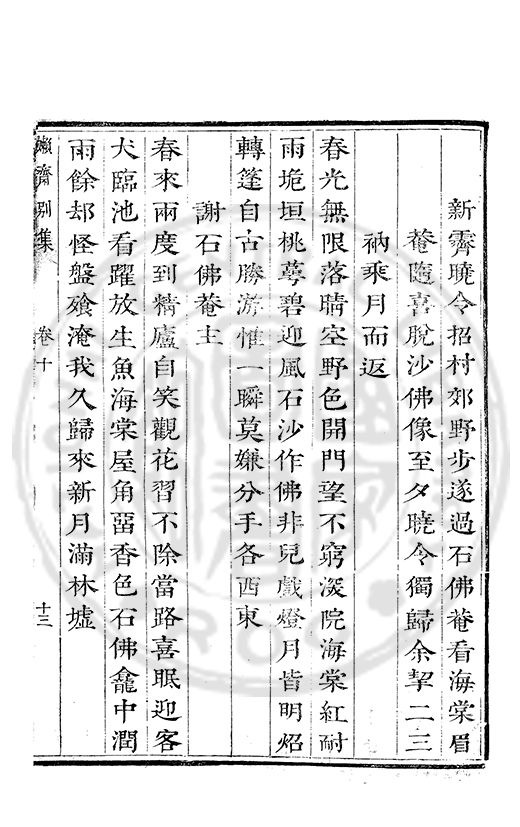 新霽曉令招村郊野步遂過石佛菴看海棠眉
菴隨喜脫沙佛像至夕曉令獨歸余挈二三
衲乘月而返
春光無限落晴空野色開門望不窮深院海棠紅耐
雨圯垣桃萼碧迎風石沙作佛非兒戲燈月皆明炤
轉篷自古勝游惟一瞬莫嫌分手各西東
謝石佛菴主
春來兩度到精廬自笑觀花習不除當路喜眠迎客
犬臨池看躍放生魚海棠屋角畱香色石佛龕中潤
雨餘却怪盤飱淹我久歸來新月滿林墟
嬾齋別集
卷十
十三